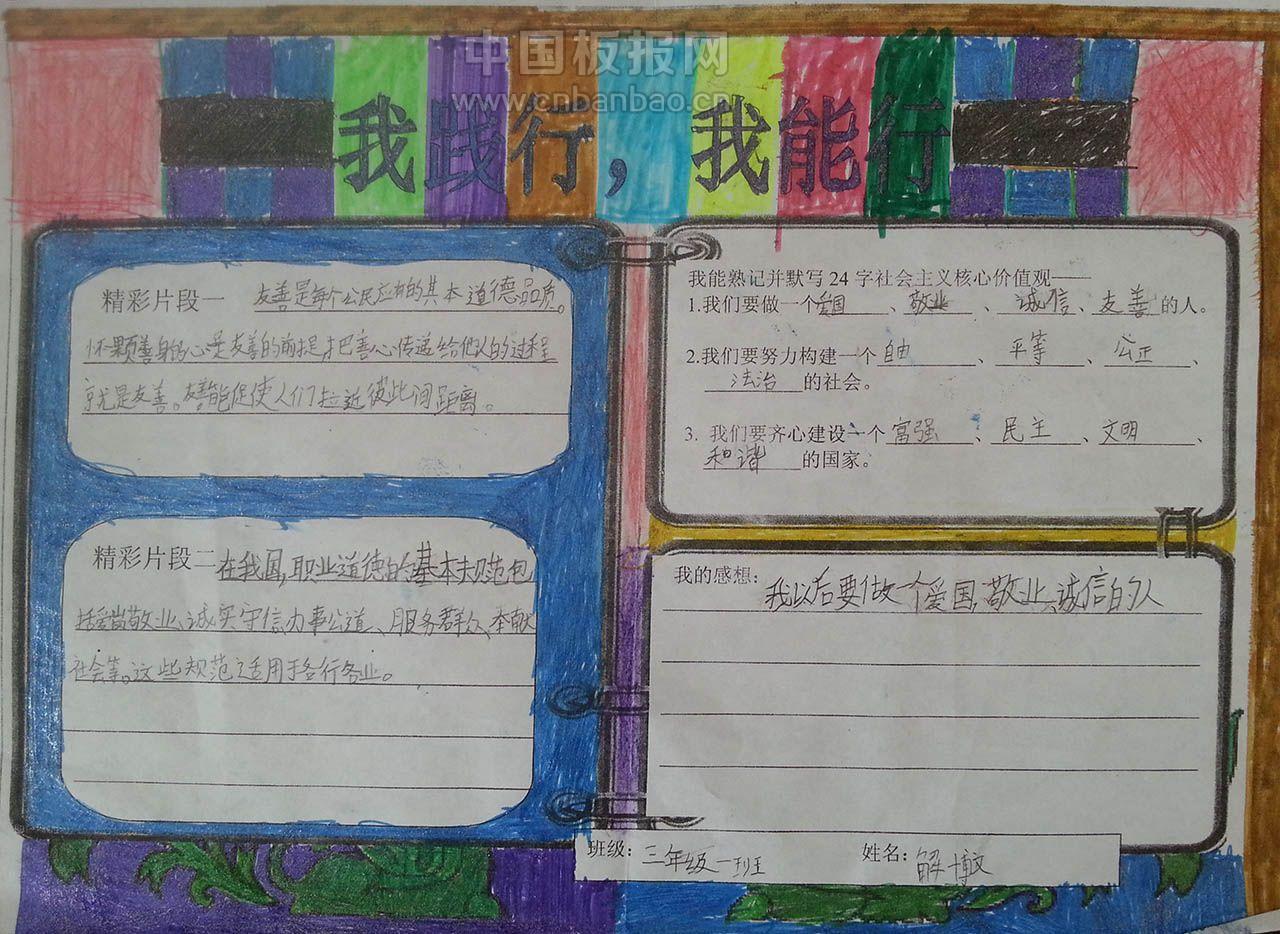 中国板报网
www.cnbanbao.cn
我践行，我能行
精彩片段一 友善是每个公民应有的基本道德品质。
怀颗善良的心是友善的前提,才把善心传递给他人的过程
就是友善。友善能促使人们拉近彼此间距离。
精彩片段二 在我国,职业道德的基本规范包
括爱岗敬业、诚实守信、办事公道、服务群众、奉献
社会等。这些规范适用于各行各业。
我能熟记并默写24字社会主义核心价值观——
1.我们要做一个爱国、敬业、诚信、友善的人。
2.我们要努力构建一个自由、平等、公正、
法治的社会。
3. 我们要齐心建设一个富强、民主、文明、
和谐的国家。
我的感想：我以后要做一个爱国,敬业、诚信的人
班级：三年级一班 姓名：解博文